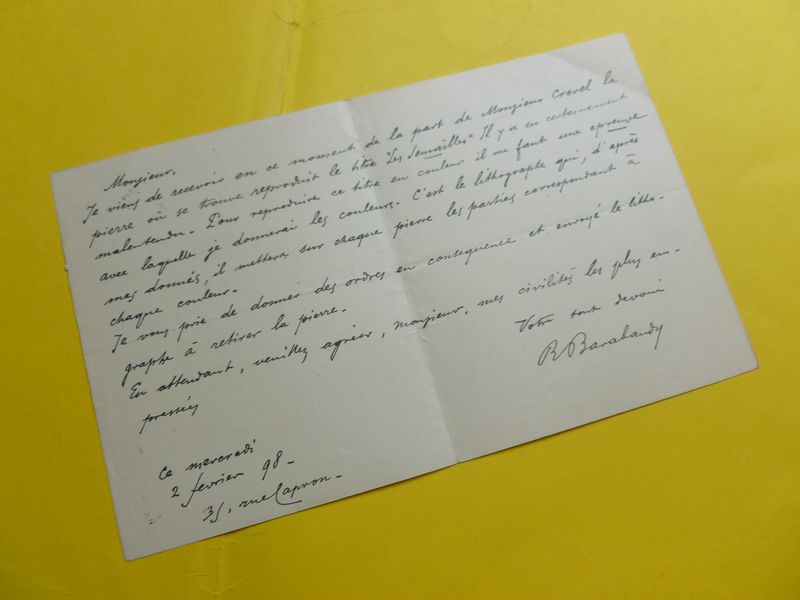 Monsieur.
Je viens de recevoir en ce moment de la part de Monsieur Crevel la
pierre où se trouve reproduit le titre "Les Semailles" Il y a eu certainement
malentendu. Pour reproduire ce titre en couleur il me faut une epreuve
avec laquelle je donnerai les couleurs. C'est le lithographe qui, d'après
mes donnés, il mettera sur chaque pierre les parties correspondant à
chaque couleur.
Je vous prie de donner des ordres en consequence et envoyé le litho-
graphe à retirer la pierre.
En attendant, veuillez agréer, monsieur, mes civilités les plus em-
pressées
Votre tout devoué
R Barabandy
Ce mercredi
2 fevrier 98-
35, rue Capron-